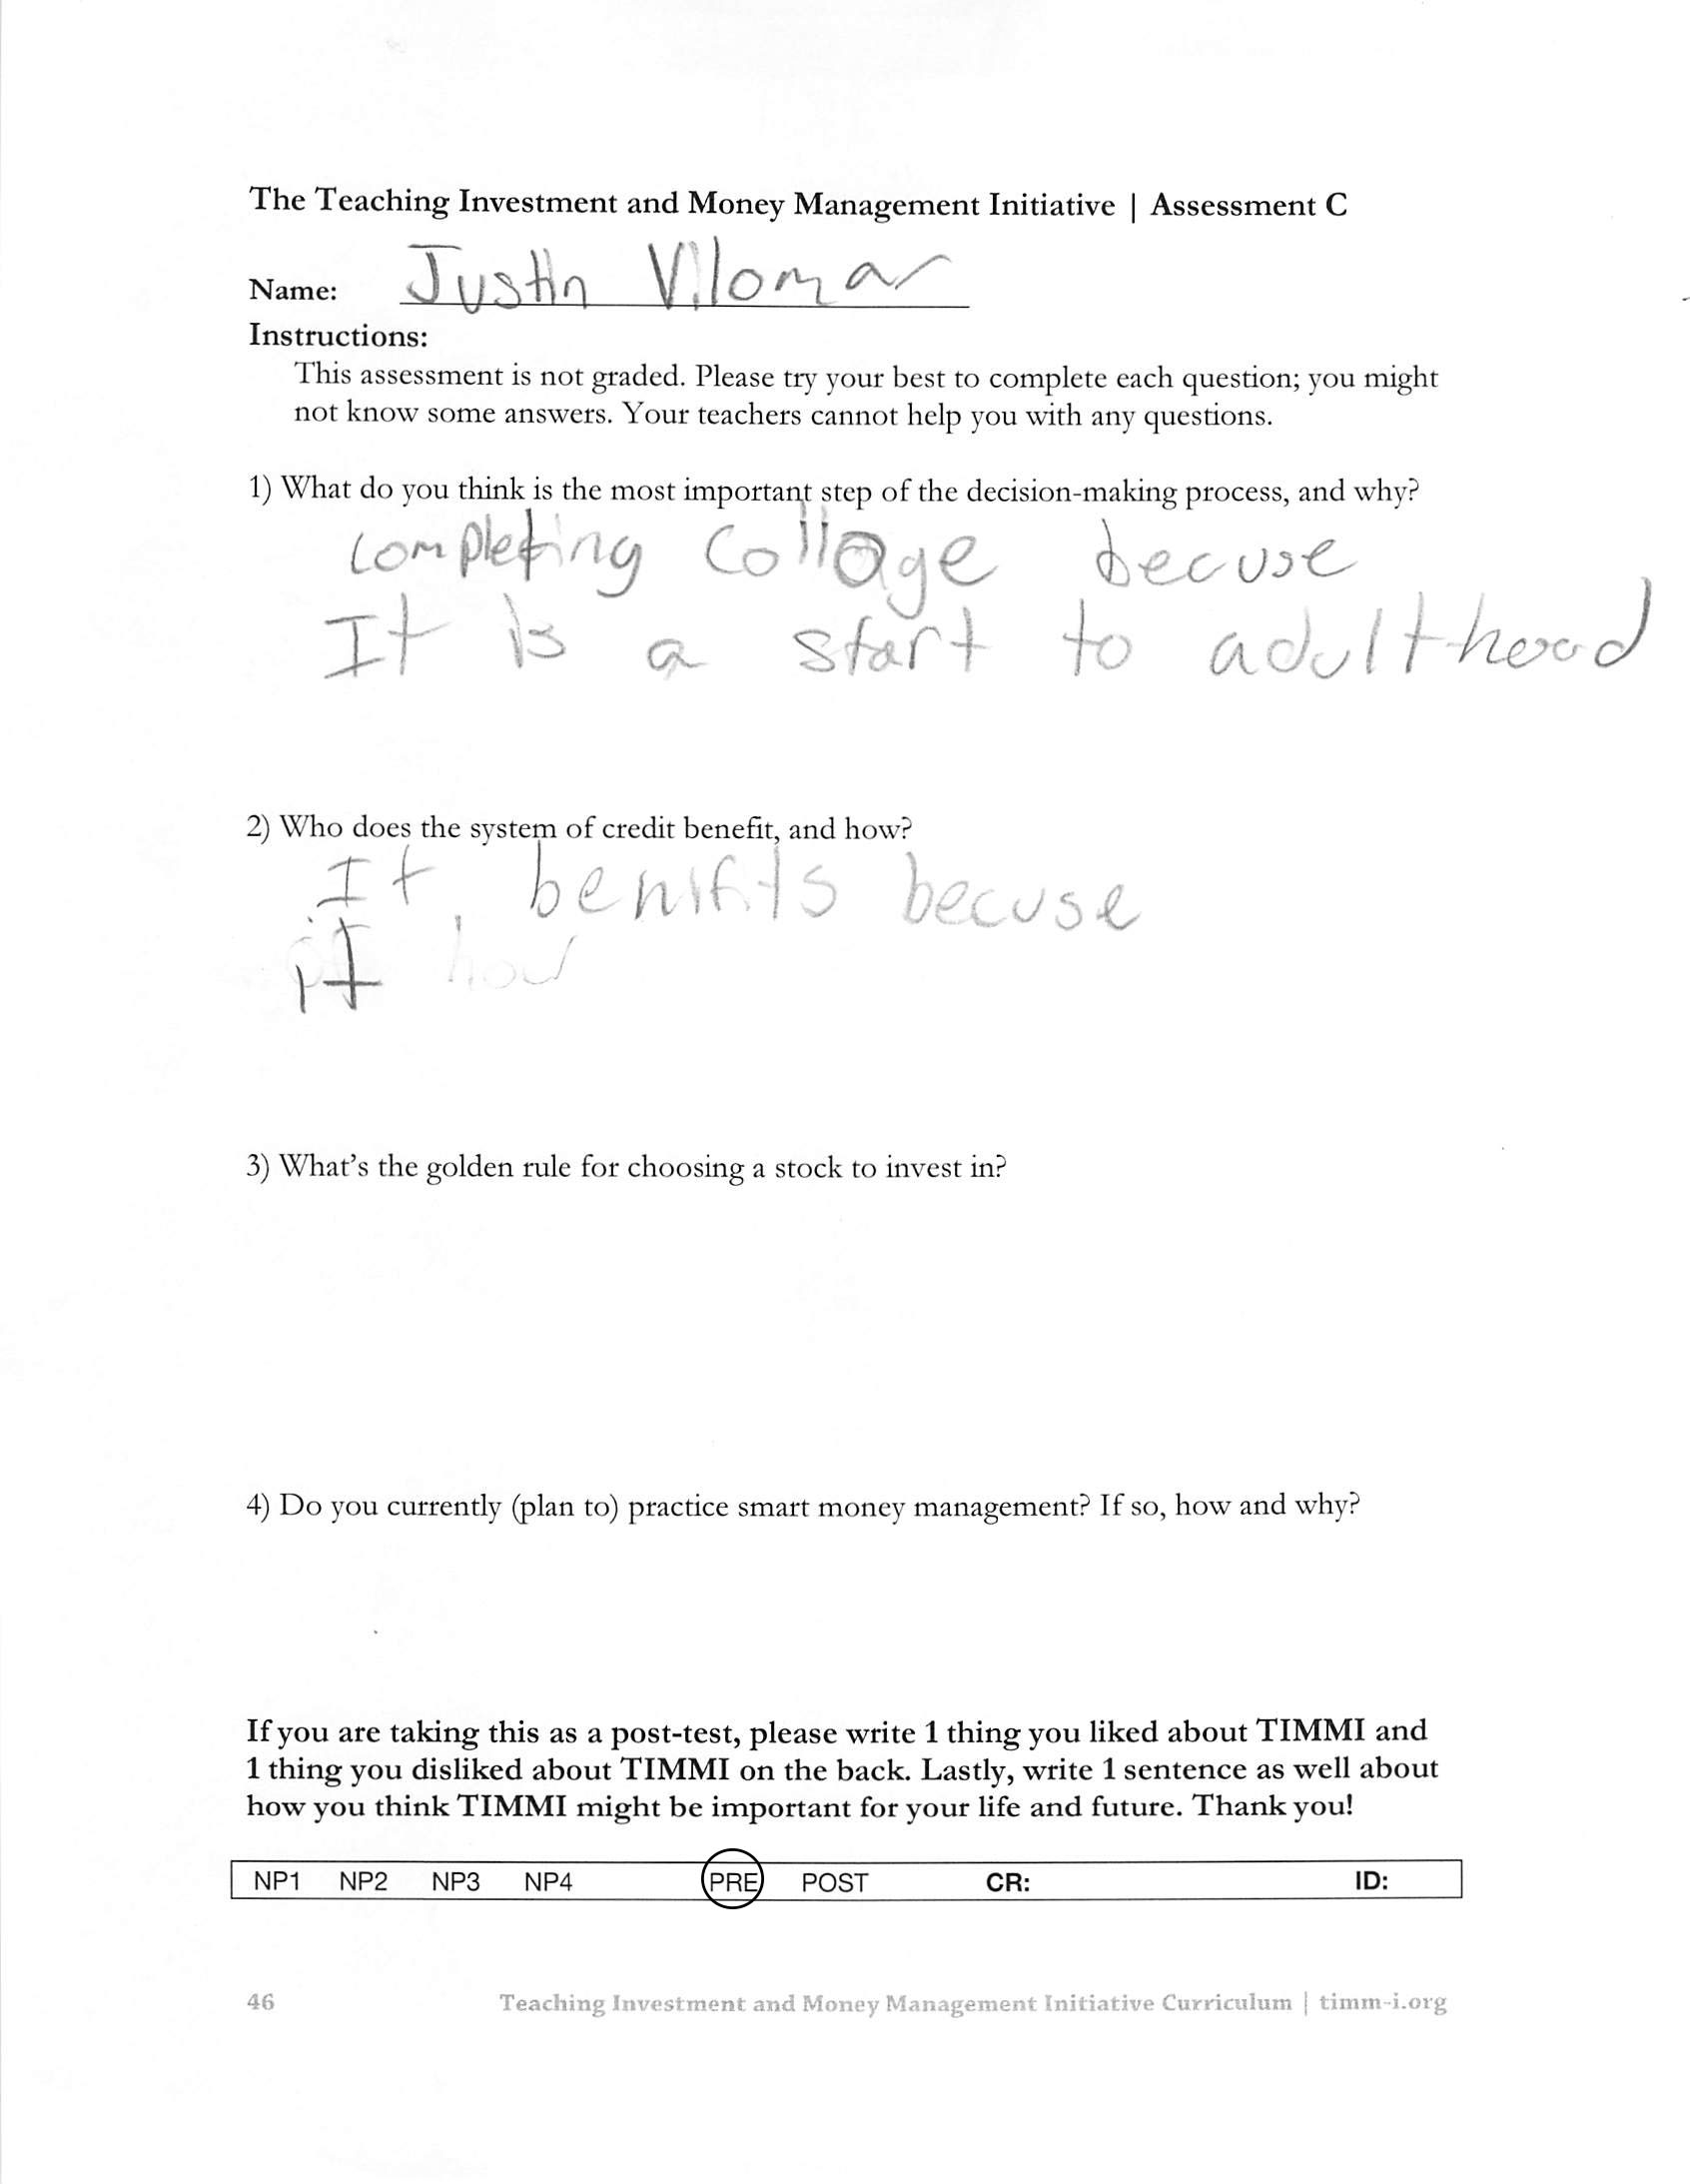 The Teaching Investment and Money Management Initiative | Assessment C
Name: Justin Vilomar
Instructions:
This assessment is not graded. Please try your best to complete each question; you might
not know some answers. Your teachers cannot help you with any questions.
1) What do you think is the most important step of the decision-making process, and why?
completing collage becuse
It is a start to adulthood
2) Who does the system of credit benefit, and how?
It benifits becuse
it how
3) What's the golden rule for choosing a stock to invest in?
4) Do you currently (plan to) practice smart money management? If so, how and why?
If you are taking this as a post-test, please write 1 thing you liked about TIMMI and
1 thing you disliked about TIMMI on the back. Lastly, write 1 sentence as well about
how you think TIMMI might be important for your life and future. Thank you!
NP1 NP2 NP3 NP4 PRE POST CR: ID:
46 Teaching Investment and Money Management Initiative Curriculum | timm-i.org